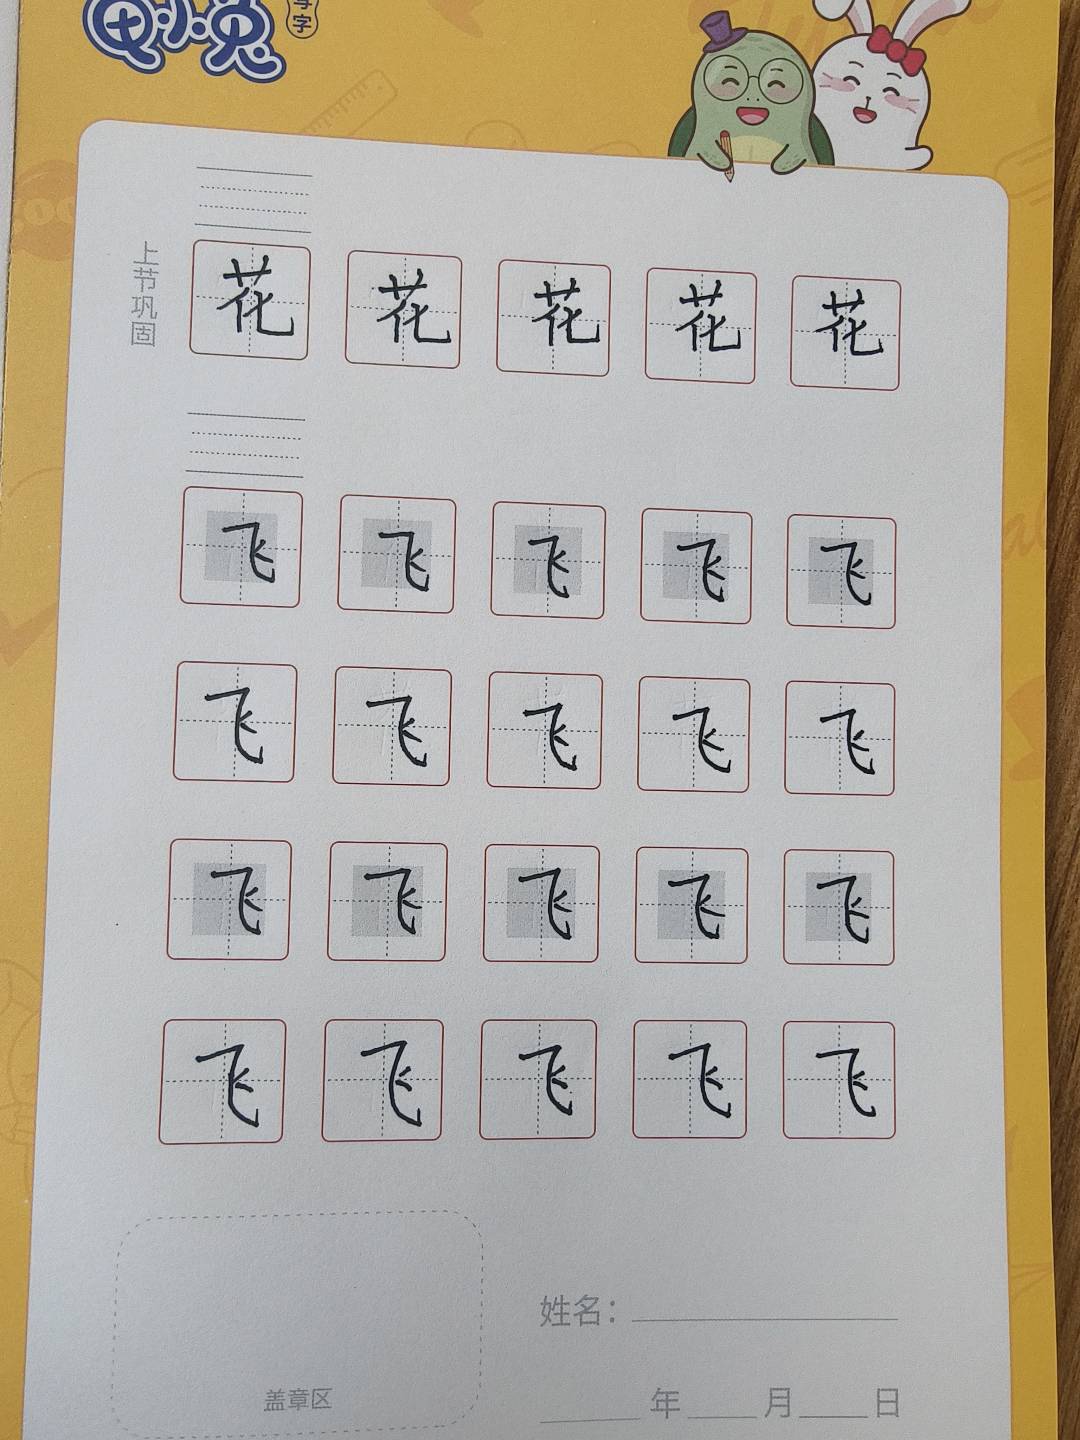 写字
上节巩固
花 花 花 花 花
飞 飞 飞 飞 飞
飞 飞 飞 飞 飞
飞 飞 飞 飞 飞
飞 飞 飞 飞 飞
姓名：
盖章区
年 月 日